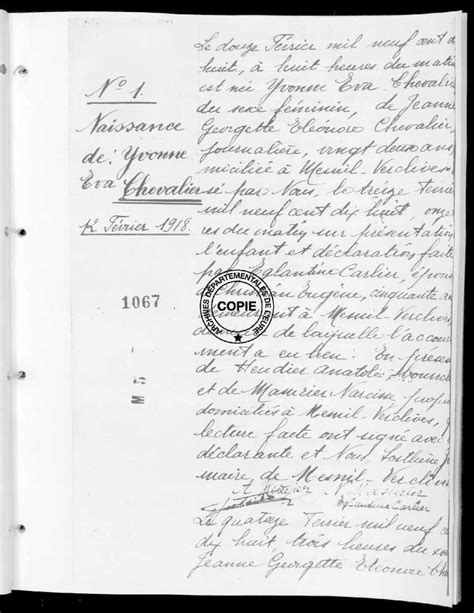 N° 1.
Naissance
de: Yvonne
Eva Chevalier
12 Février 1918.
1067
M 5
ARCHIVES DÉPARTEMENTALES DE L'EURE
COPIE
Le douze Février mil neuf cent d
huit, à huit heures du matin
est née Yvonne Eva Chevalier
du sexe féminin, de Jeanne
Georgette Eléonore Chevalier,
journalière, vingt deux ans,
miciliée à Mesnil-Verclives
sé par Nous, le treize Février
mil neuf cent dix huit, onze
res du matin sur présentation
l'enfant et déclaration faite
par Eglantine Carlier, épouse
Eugène, cinquante a
à Mesnil-Verclives,
de laquelle l'accou
ment a eu lieu. En présen
de Heudier Anatole,
et de Masurier Narcisse, prop
domiciliés à Mesnil-Verclives,
lecture faite ont signé avec
déclarante et Nous,
maire de Mesnil-Verclives
Eglantine Carlier
Le quatorze Février mil neuf c
dix huit, trois heures du so
Jeanne Georgette Eléonore Che